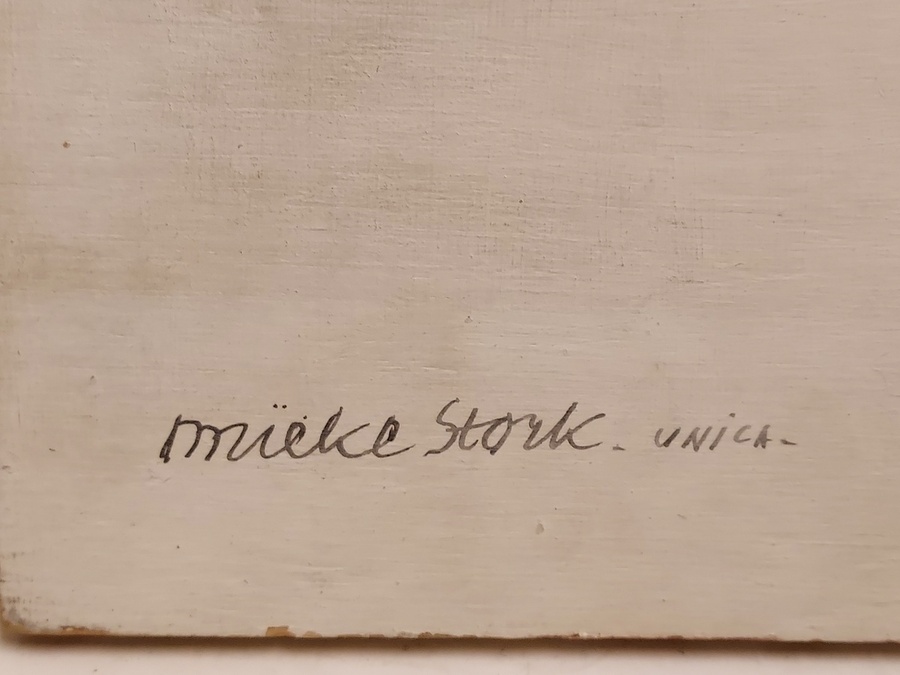 mïeke Stork. UNiCA-